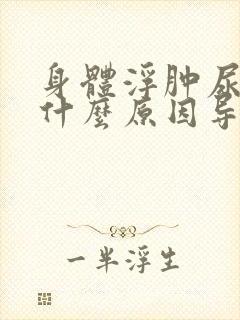 身體浮肿尿
什麼原因导
一半浮生